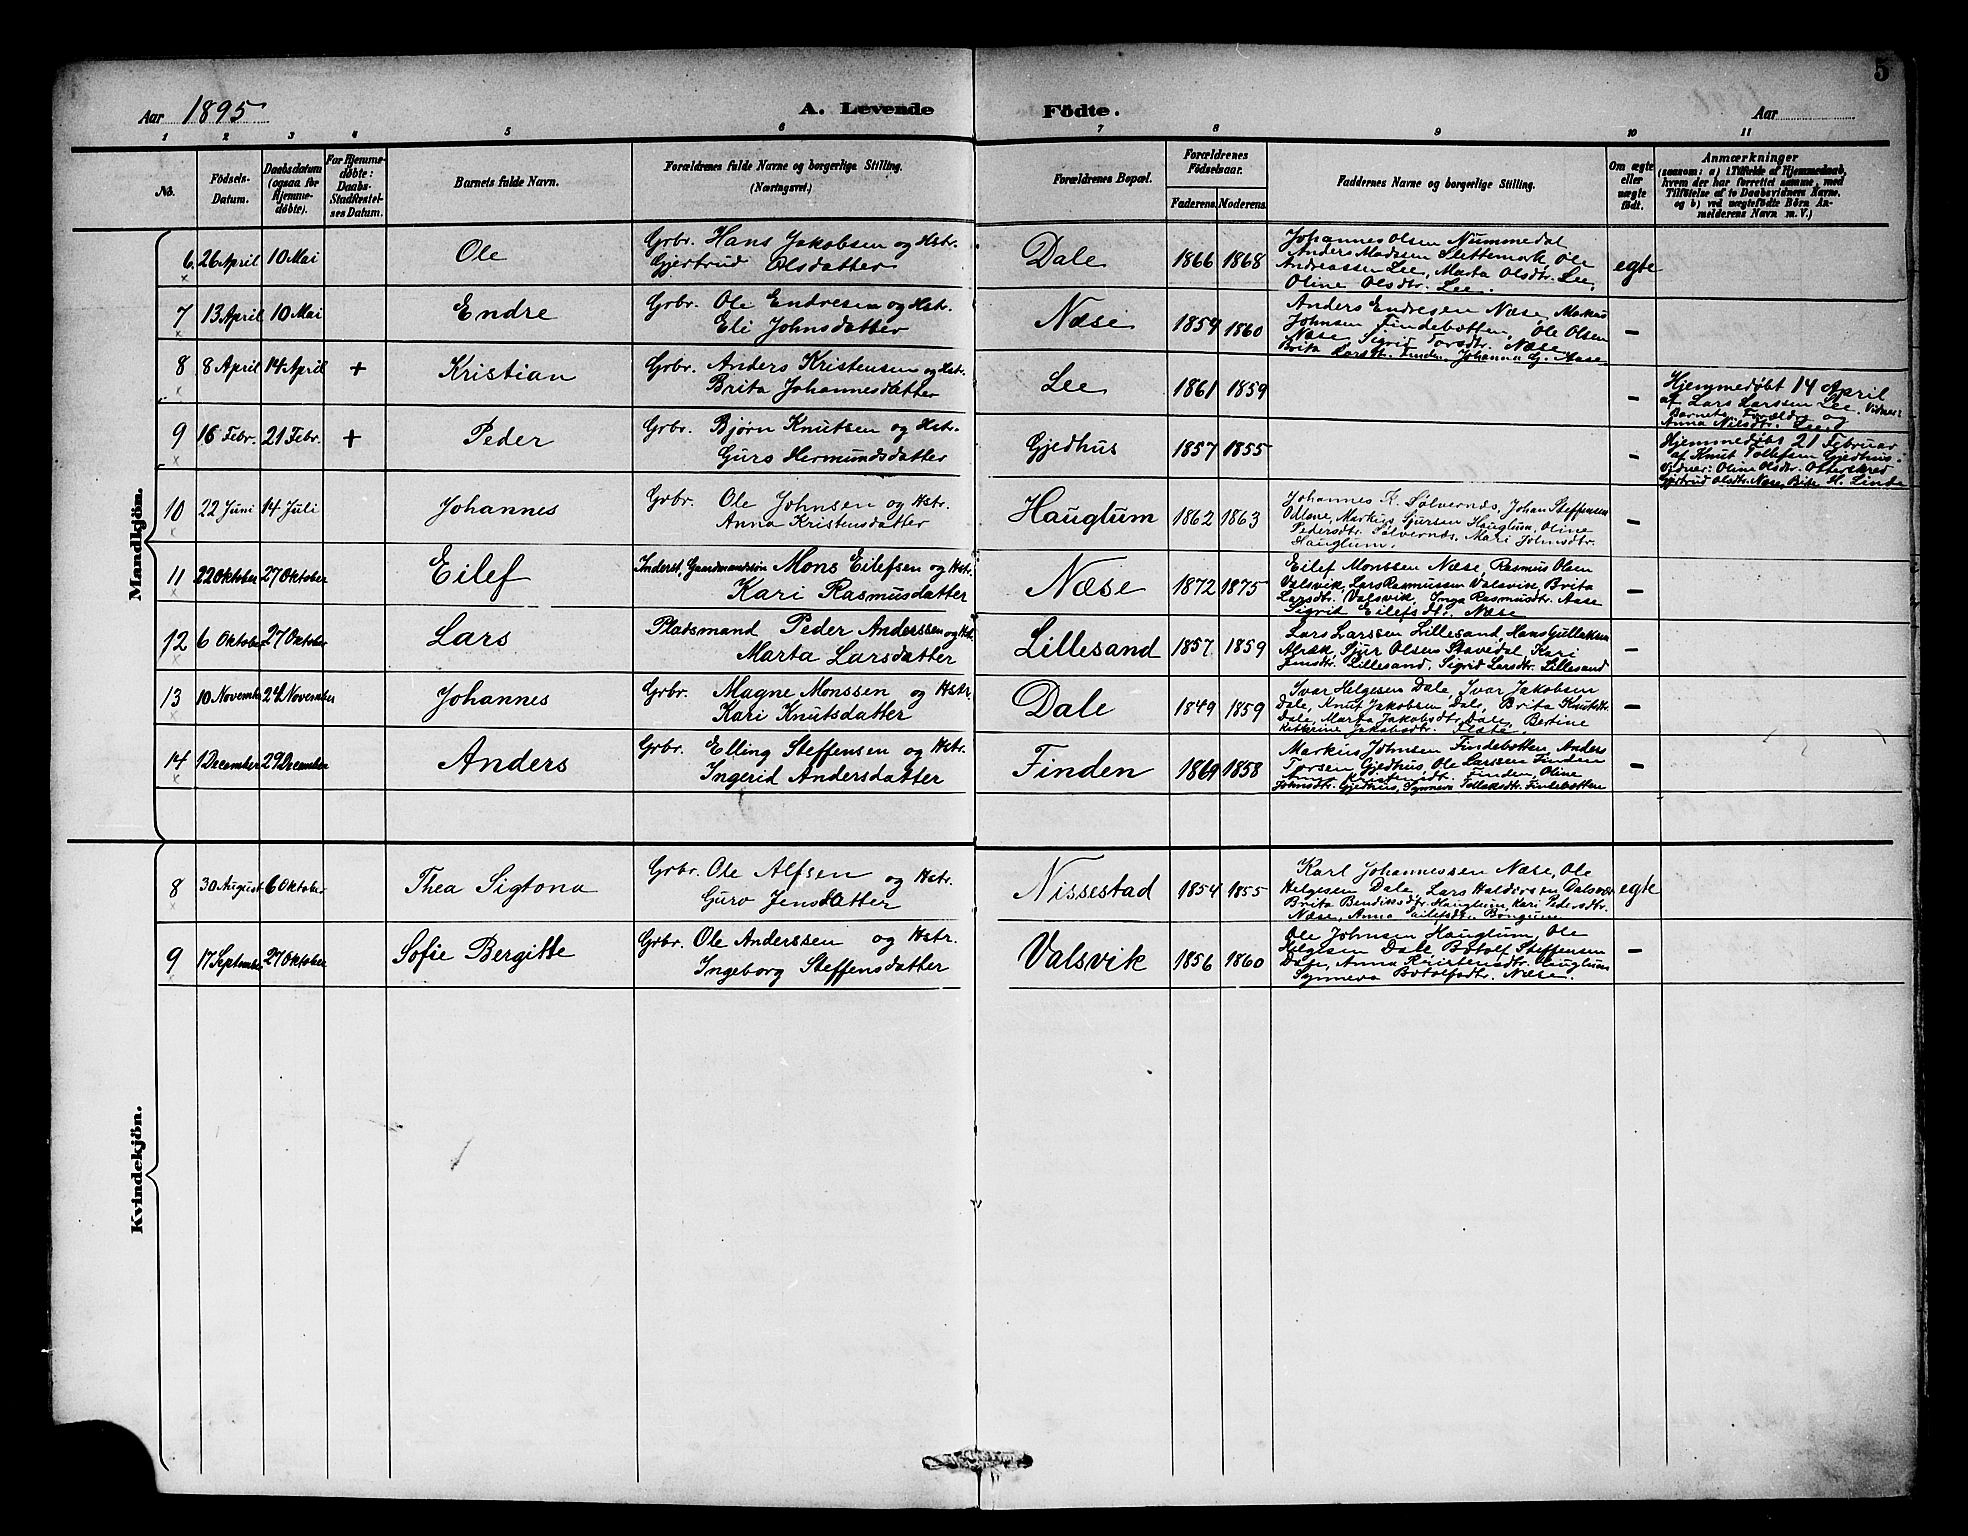 5
Aar 1895
A. Levende Födte.
Aar
1 2 3 4 5 6 7 8 9 10 11
No.
Födsels-Datum.
Daabsdatum (ogsaa for Hjemmedöbte).
For Hjemmedöbte: Daabs-Stadfæstelses Datum.
Barnets fulde Navn.
Forældrenes fulde Navne og borgerlige Stilling. (Næringsvei.)
Forældrenes Bopæl.
Forældrenes Födselsaar.
Faderens. Moderens.
Faddernes Navne og borgerlige Stilling.
Om ægte eller uægte födt.
Anmærkninger
(saasom: a) i Tilfælde af Hjemmedaab, hvem der har forrettet samme, med Tilföielse af to Daabsvidners Navne, og b) ved uægtefödte Börn Anmelderens Navn m. V.)
Mandkjön.
6 26 April 10 Mai Ole Grbr. Hans Jakobsen og Hstr. Dale 1866 1868 Johannes Olsen Nummedal egte
x Gjertrud Olsdatter Anders Madssen Slettemark Ole
Andreassen Lee, Marta Olsdtr. Lee,
Oline Olsdtr. Lee.
7 13 April 10 Mai Endre Grbr. Ole Endresen og Hstr. Næse 1859 1860 Anders Endresen Næse, Markus –
x Eli Johnsdatter Johnsen Findebotten, Ole Olsen
Næse, Sigrid Torsdtr. Næse
Brita Larsdtr. Finden, Johanna dj. Aase
8 8 April 14 April + Kristian Grbr. Anders Kristensen og Hstr. Lee 1861 1859 – Hjemmedøbt 14 April
Brita Johannesdatter af Lars Larssen Lee. Vidner:
Barnets Forældre og
Anna Nilsdtr. Lee
9 16 Febr. 21 Febr. + Peder Grbr. Bjørn Knutsen og Hstr. Gjedhus 1857 1855 – Hjemmedøbt 21 Februar
x Guro Hermundsdatter af Knut Tollefsen Gjedhus:
Vidner: Oline Olsdtr. Otterskred
Gjertrud Olsdtr. Næse, Brita H. Linde
10 22 Juni 14 Juli Johannes Grbr. Ole Johnsen og Hstr. Hauglum 1862 1863 Johannes K. Sølvernæs, Johan Steffensen –
x Anna Kristensdatter Markus Sjursen Hauglum, Oline
Pedersdtr. Sølvernæs, Mari Johnsdtr.
Hauglum.
11 22 Oktober 27 Oktober Eilef Inderst, Gaardmandssøn Mons Eilefsen og Hstr. Næse 1872 1875 Eilef Monssen Næse, Rasmus Olsen –
x Kari Rasmusdatter Valsvik, Lars Rasmussen Valsvik, Brita
Larsdtr. Valsvik, Inga Rasmusdtr. Aase
Sigrid Eilefsdtr. Næse
12 6 Oktober 27 Oktober Lars Pladsmand Peder Anderssen og Hstr. Lillesand 1857 1859 Lars Larssen Lillesand, Hans Gullaksen –
x Marta Larsdatter Alræk, Sjur Olsen Stavedal, Kari
Jensdtr. Lillesand, Sigrid Larsdtr. Lillesand
13 10 November 24 November Johannes Grbr. Magne Monssen og Hstr. Dale 1849 1859 Ivar Helgesen Dale, Ivar Jakobsen –
x Kari Knutsdatter Dale, Knut Jakobsen Dale, Brita Knutsdtr.
Dale, Marta Jakobsdtr. Dale, Bertine
Katherine Jakobsdtr. Flåte.
14 1 December 29 December Anders Grbr. Elling Steffensen og Hstr. Finden 1864 1858 Markus Johnsen Findebotten, Anders –
x Ingerid Andersdatter Torsen Gjedhus, Ole Larssen Finden
Anna Kristensdtr. Finden, Oline
Johnsdtr. Gjedhus, Synneva Tollaksdtr. Findebotten
Kvindekjön.
8 30 August 6 Oktober Thea Sigtona Grbr. Ole Alfsen og Hstr. Nissestad 1854 1855 Karl Johannessen Næse, Ole egte
x Guro Jensdatter Helgesen Dale, Lars Haldorsen
Brita Bendiksdtr. Hauglum, Kari Pedersdtr.
Næse, Anna
9 17 September 27 Oktober Sofie Bergitte Grbr. Ole Anderssen og Hstr. Valsvik 1856 1860 Ole Johnsen Hauglum, Ole –
x Ingeborg Steffensdatter Helgesen Dale, Botolf Steffensen
Dale, Anna Kristensdtr. Hauglum
Synneva Botolfsdtr. Næse.